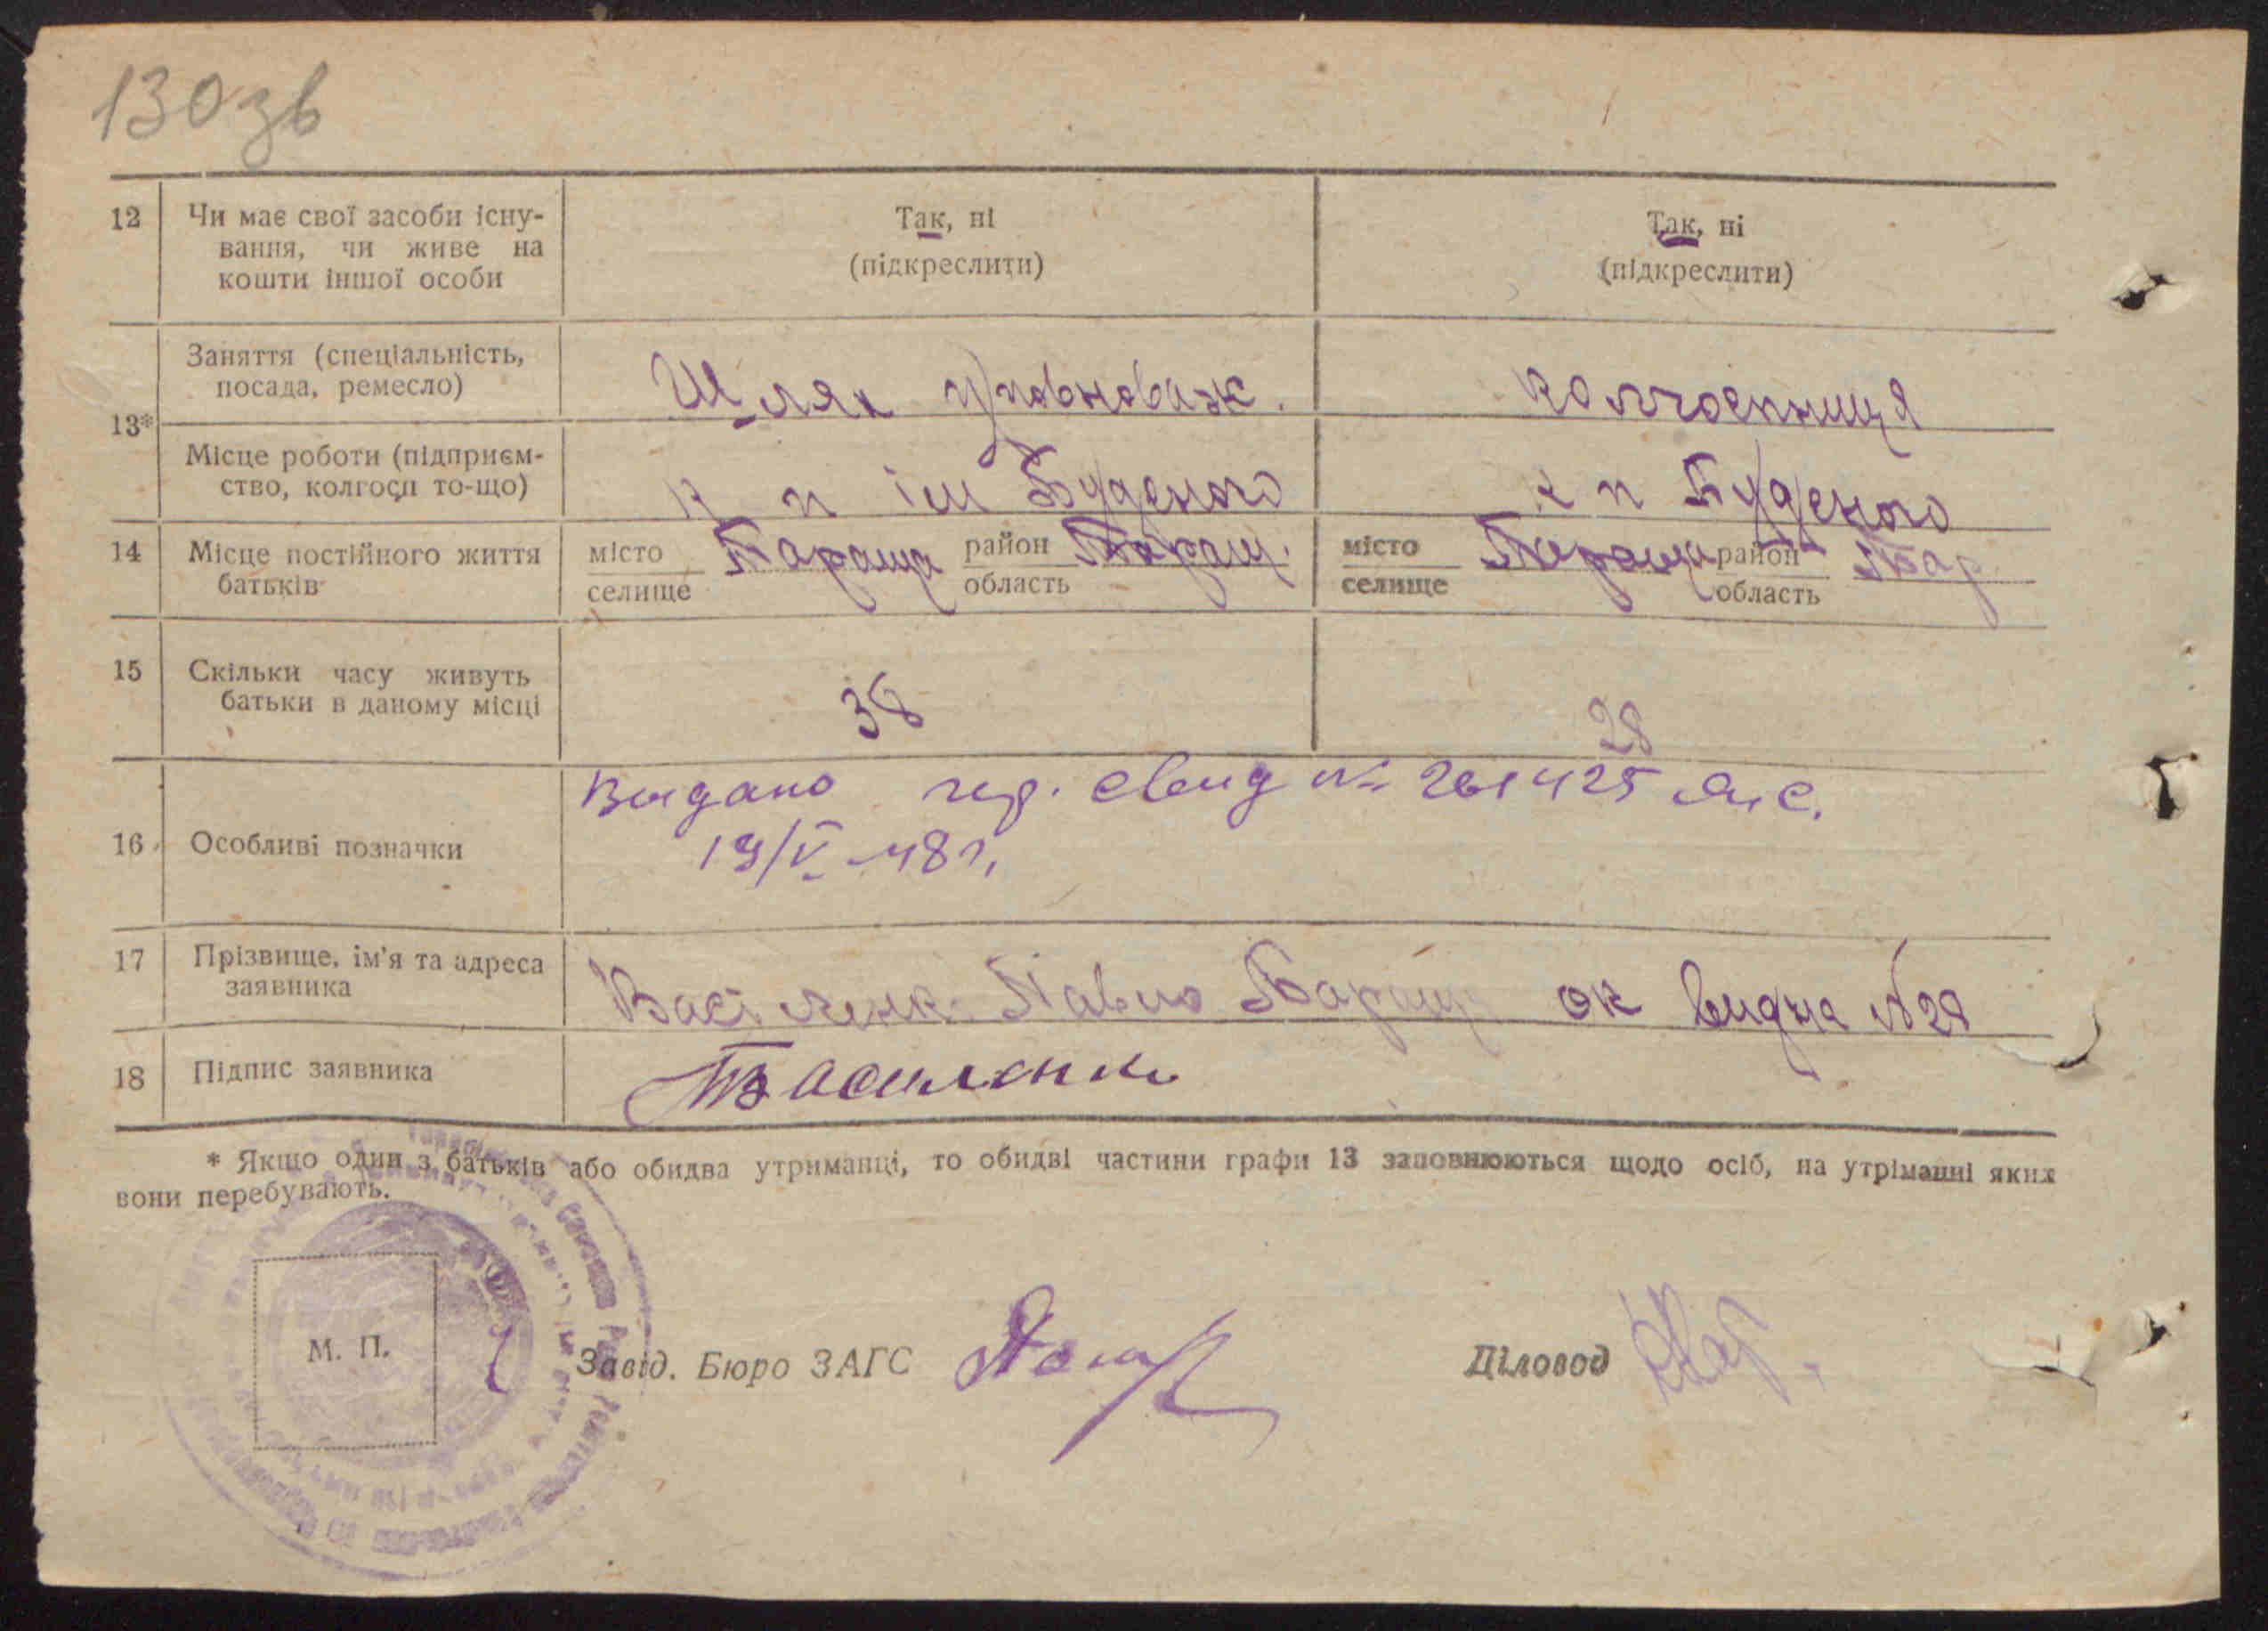 130зв
12 Чи має свої засоби існу- Так, ні Так, ні
вання, чи живе на (підкреслити) (підкреслити)
кошти іншої особи
13* Заняття (спеціальність, Шлях уповноваж. колгоспниця
посада, ремесло)
Місце роботи (підприєм- к п ім Буденого к п Буденого
ство, колгосп то-що)
14 Місце постійного життя місто Тараща район Таращ. місто Тараща район Тар
батьків селище область селище область
15 Скільки часу живуть 38 28
батьки в даному місці
Выдано свид № 261425
16 Особливі позначки 19/V-48 г.
17 Прізвище, ім'я та адреса Павло Таращ
заявника
18 Підпис заявника Василенко
* Якщо один з батьків або обидва утриманці, то обидві частини графи 13 заповнюються щодо осіб, на утріманні яких
вони перебувають.
М. П. Завід. Бюро ЗАГС Діловод